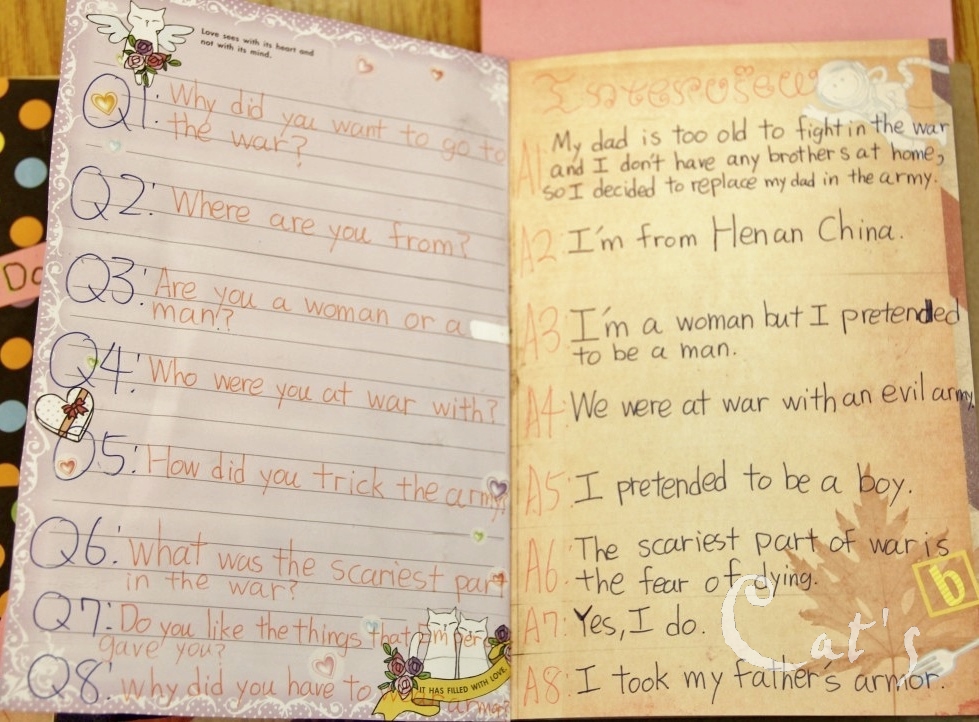 Love sees with its heart and
not with its mind.
Q1: Why did you want to go to
the war?
Q2: Where are you from?
Q3: Are you a woman or a
man?
Q4: Who were you at war with?
Q5: How did you trick the army?
Q6: What was the scariest part
in the war?
Q7: Do you like the things that Emper
gave you?
Q8: why did you have to
IT HAS FILLED WITH LOVE.
Do
Interview
A1: My dad is too old to fight in the war
and I don't have any brothers at home,
so I decided to replace my dad in the army.
A2: I'm from Henan China.
A3: I'm a woman but I pretended
to be a man.
A4: We were at war with an evil army.
A5: I pretended to be a boy.
A6: The scariest part of war is
the fear of dying.
A7: Yes, I do.
A8: I took my father's armor.
b
Cat's